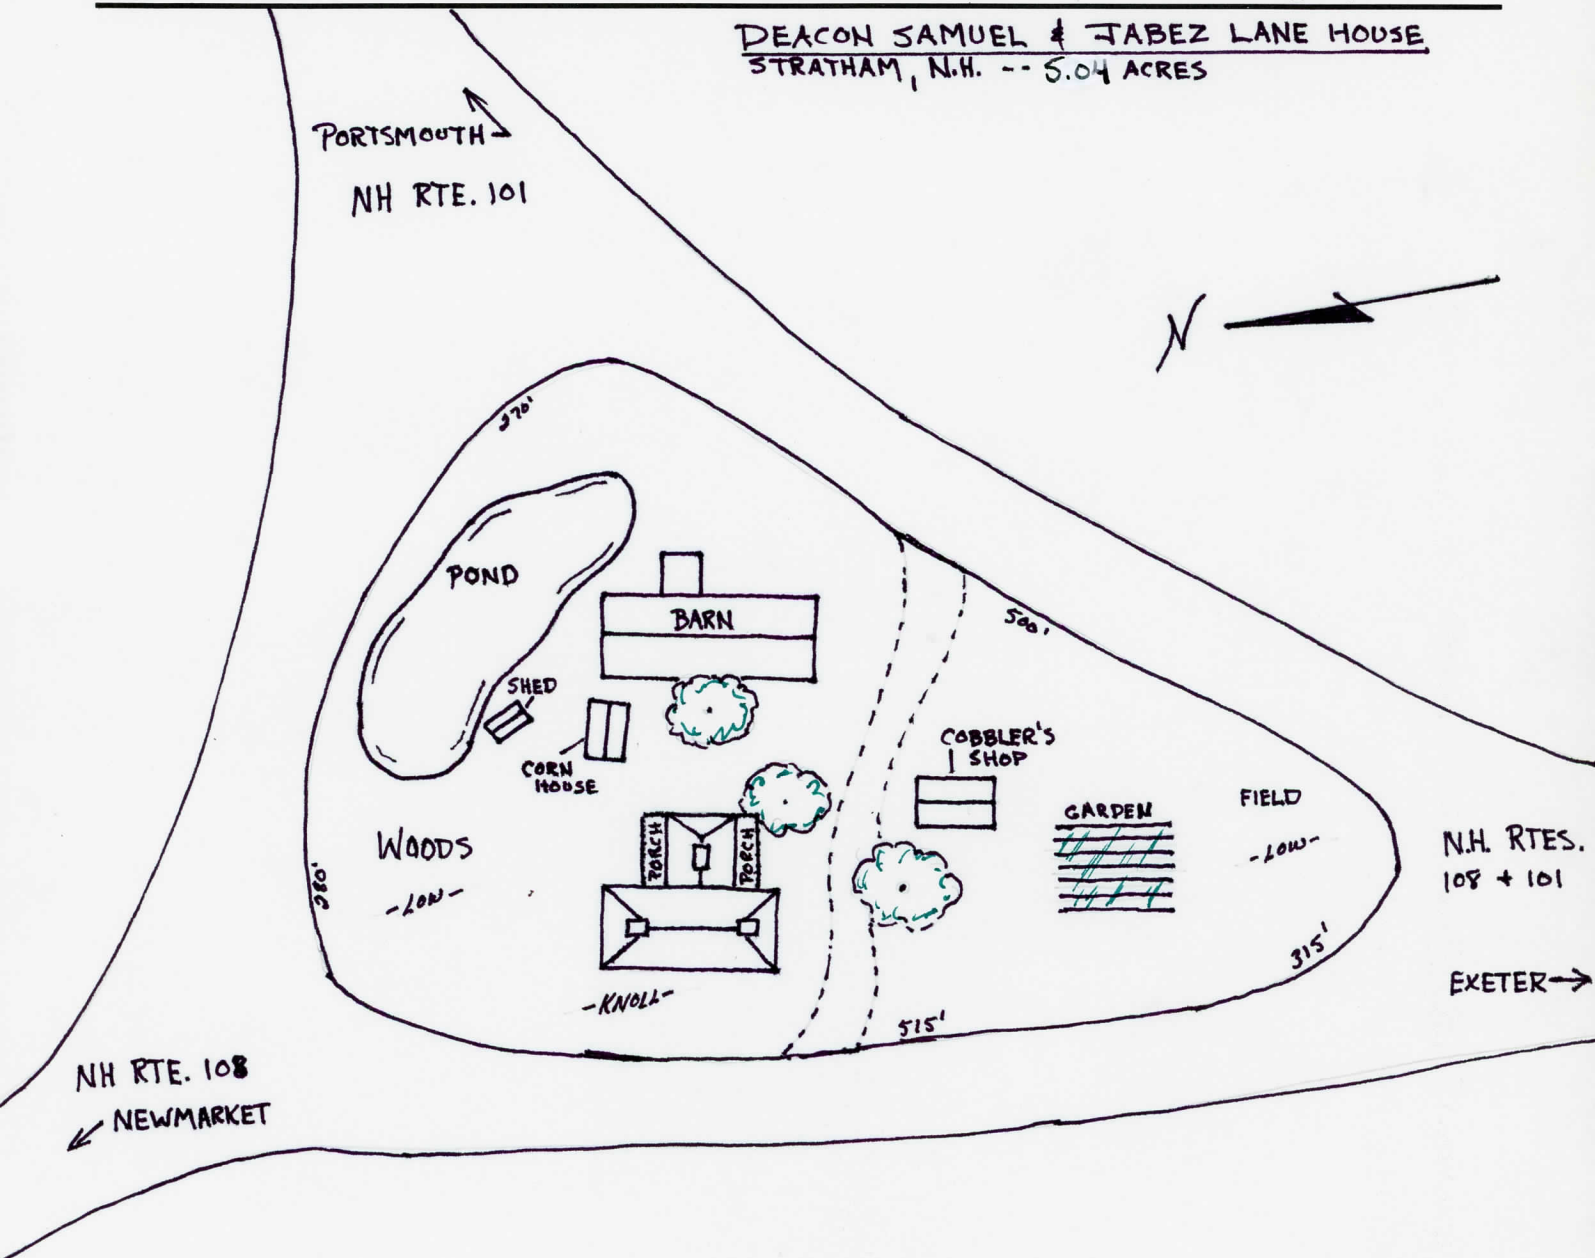 DEACON SAMUEL & JABEZ LANE HOUSE
STRATHAM, N.H. -- 5.04 ACRES
PORTSMOUTH
NH RTE. 101
N
270'
POND
BARN
500'
SHED
CORN
HOUSE
COBBLER'S
SHOP
GARDEN
FIELD
-LOW-
WOODS
-LOW-
PORCH
PORCH
280'
N.H. RTES.
108 + 101
315'
EXETER
-KNOLL-
515'
NH RTE. 108
NEWMARKET